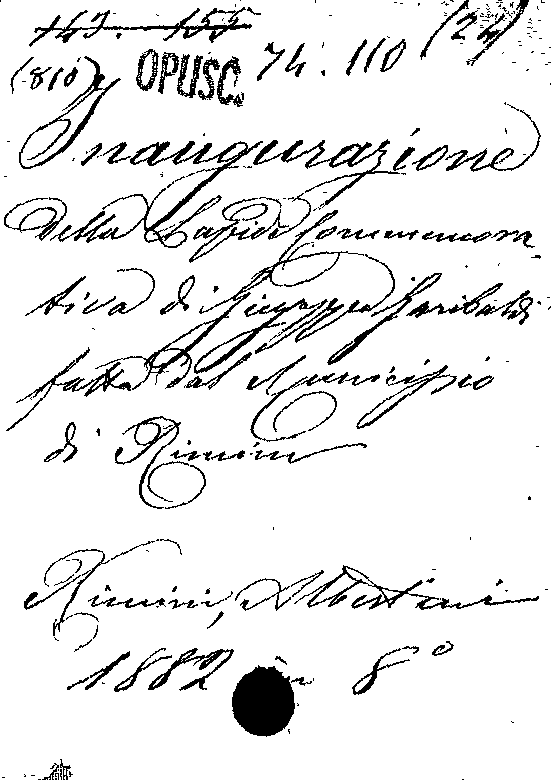 143. 155
(24)
(810) OPUSC. 74. 110
Inaugurazione
della Lapide Commemora
tiva di Giuseppe Garibaldi
fatta dal Municipio
di Rimini
Rimini, Albertini
1882 in 8°